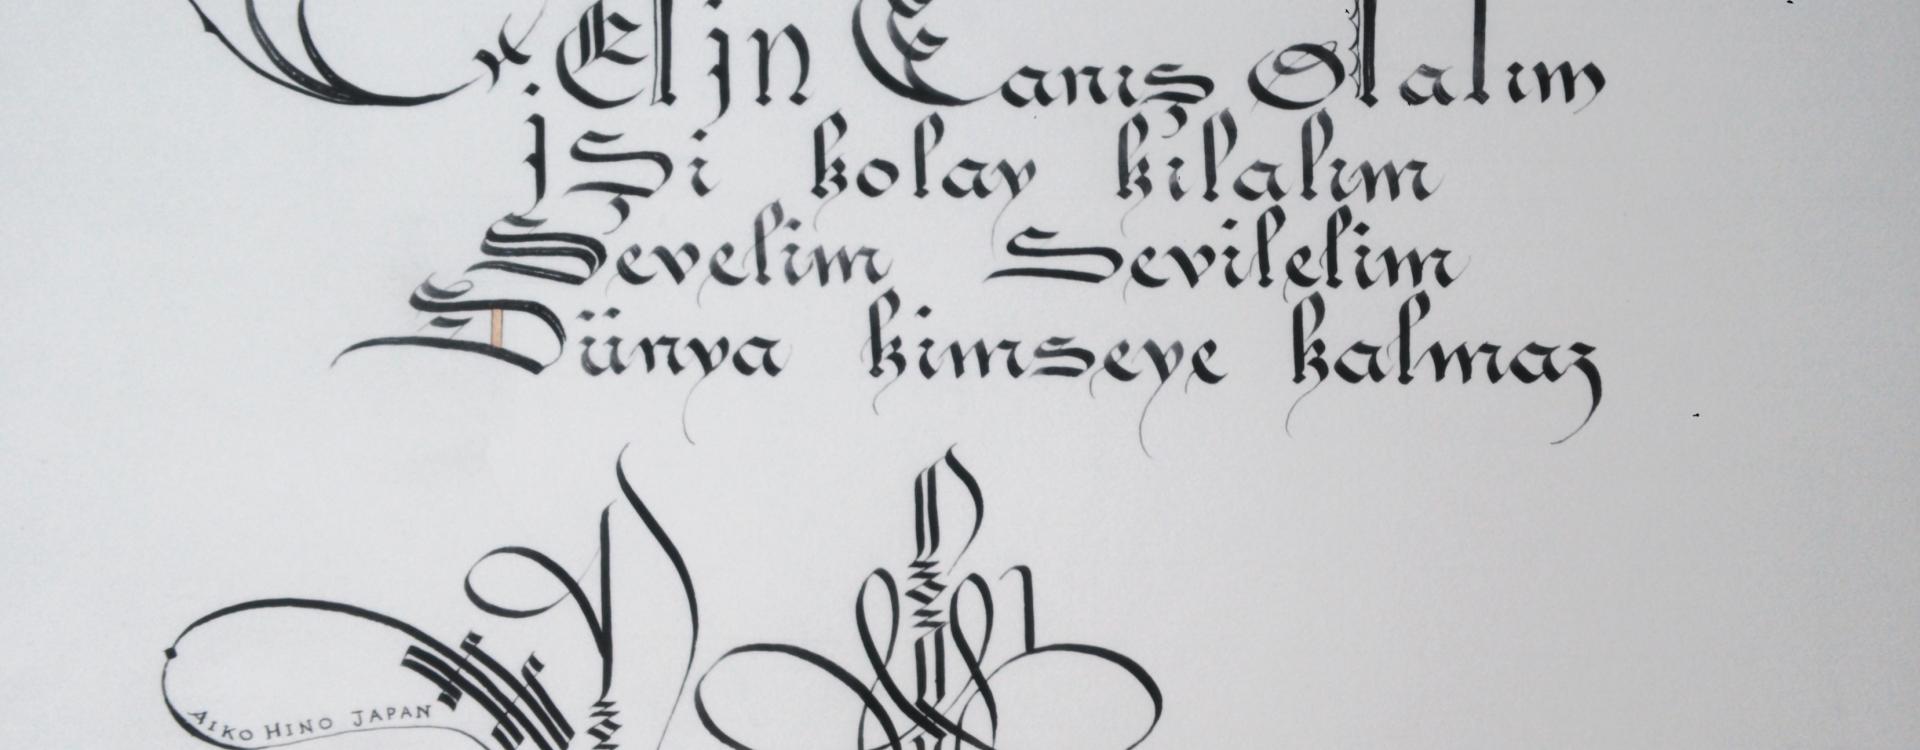 Gelin Tanış Olalım
İşi kolay kılalım
Sevelim Sevilelim
Dünya kimseye kalmaz
AIKO HINO JAPAN